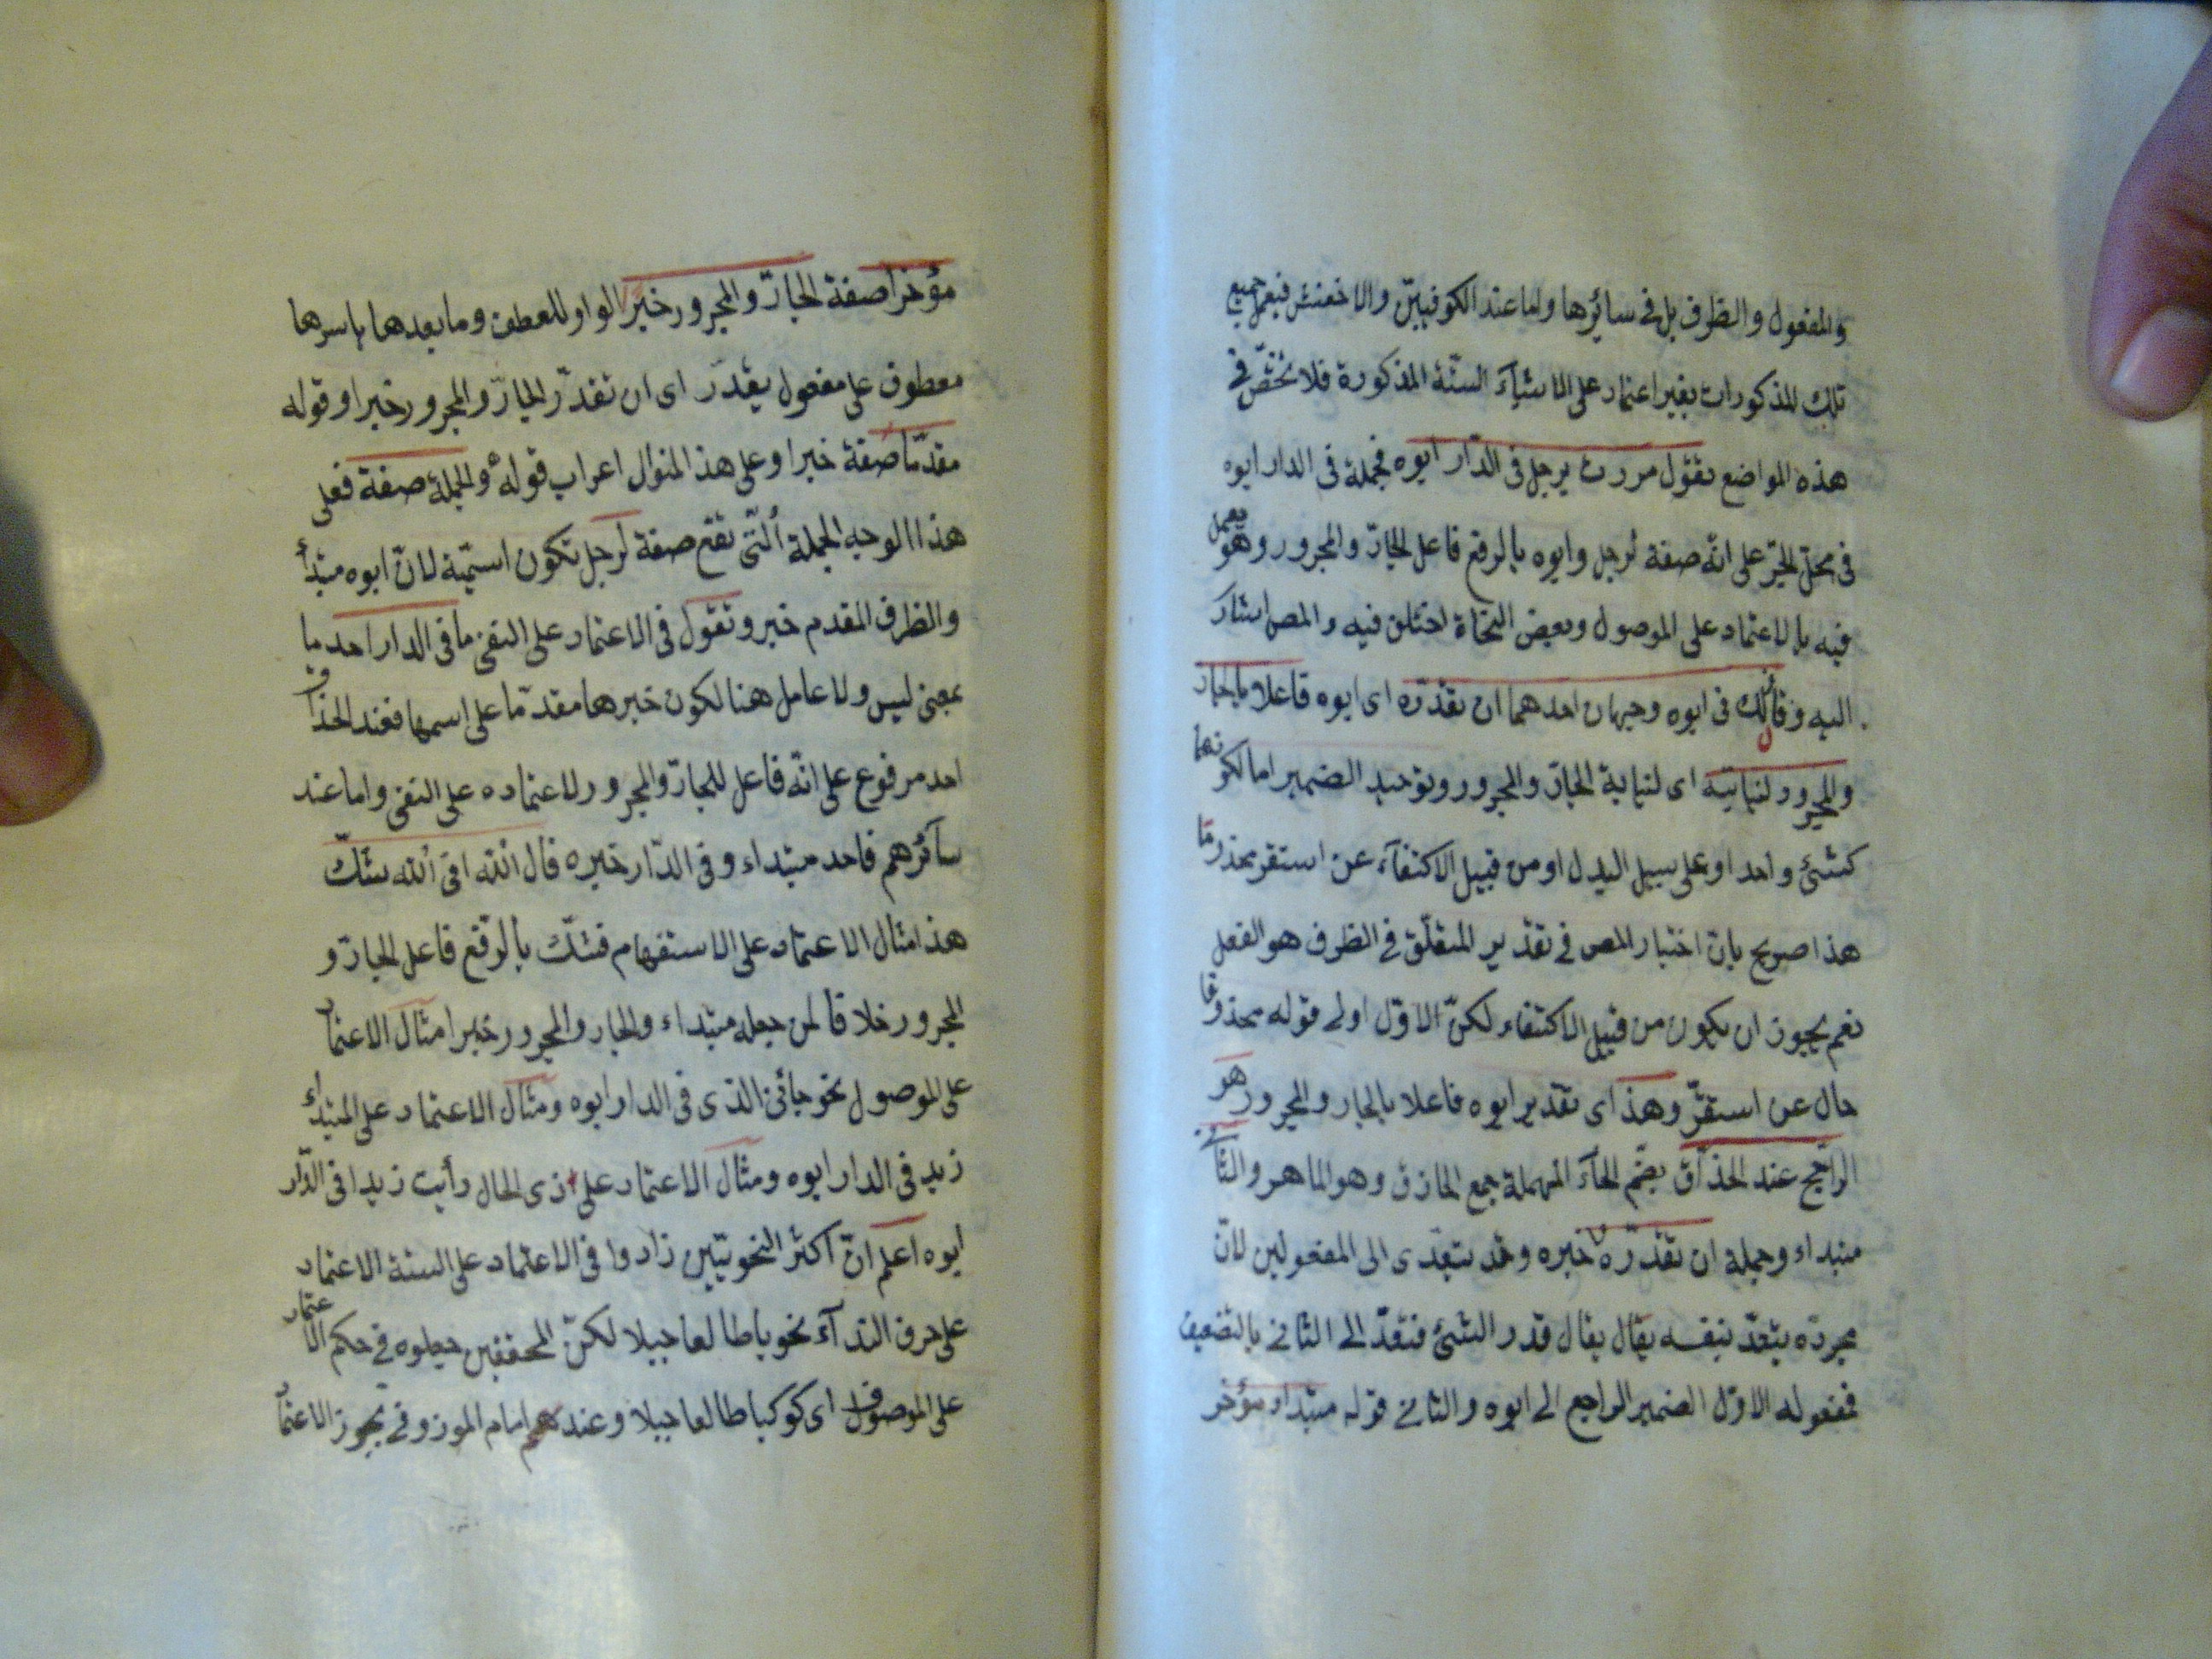 والمفعول والظرف بل في سائرها واما عند الكوفيين والاخفش فيعمل جميع
تلك المذكورات بغير اعتماد على الاشيآء الستة المذكورة فلا يختص في
هذه المواضع تقول مررت برجل في الدار ابوه فجملة في الدار ابوه
في محل الجر على انه صفة لرجل وابوه بالرفع فاعل الجار والمجرور وهو يعمل
فيه بالاعتماد على الموصول وبعض النحاة اختلف فيه والمص اشار
اليه وقال لك في ابوه وجهان احدهما ان تقدره اى ابوه فاعلا بالجار
والمجرور لنيابته اى لنيابة الجار والمجرور وتوحيد الضمير اما لكونهما
كشئ واحد او على سبيل البدل او من قبيل الاكتفآء عن استقر محذوفا
هذا صريح بان اختيار المص في تقدير المتعلق في الظرف هو الفعل
نعم يجوز ان يكون من قبيل الاكتفاء لكن الاول اولى قوله محذوفا
حال عن استقر وهذا اى تقدير ابوه فاعلا بالجار والمجرور هو
الراجح عند الحذاق بضم الحآء المهملة جمع الحاذق وهو الماهر والثاني
مبتداء وجملة ان تقدره خبره وقد يتعدى الى المفعولين لان
مجرده يتعد بنفسه يقال يقال قدر الشئ فتعد الى الثاني بالتضعيف
فمفعوله الاول الضمير الراجع الى ابوه والثاني قوله مبتداء مؤخر
مؤخرا صفة الجار والمجرور خبر الواو للعطف وما بعدها باسرها
معطوف على مفعول يقدر اى ان تقدر الجار والمجرور خبرا وقوله
مقدما صفة خبرا وعلى هذ المنوال اعراب قوله والجملة صفة فعلى
هذا الوجه الجملة التى تقع صفة لرجل تكون اسمية لان ابوه مبتدأ
والظرف المقدم خبر وتقول في الاعتماد على النفى ما في الدار احد ما
بمعنى ليس ولا عامل هنا لكون خبرها مقدما على اسمها فعند الحذاق
احد مرفوع على انه فاعل للجار والمجرور لاعتماده على النفى واما عند
سآئرهم فاحد مبتداء وفي الدار خبره قال الله افى الله شك
هذا مثال الاعتماد على الاستفهام فشك بالرفع فاعل الجار و
المجرور خلافا لمن جعله مبتداء والجار والمجرور خبرا مثال الاعتماد
على الموصول نحو جائنى الذى في الدار ابوه ومثال الاعتماد على المبتدأ
زيد في الدار ابوه ومثال الاعتماد على ذى الحال رأيت زيدا في الدار
ابوه اعلم ان اكثر النحويين زادوا في الاعتماد على الستة الاعتماد
على حرف الندآء نحو ياطالعا جبلا لكن المحققين جعلوه في حكم الاعتماد
على الموصوف اى كوكبا طالعا جبلا وعندهم امام المرزوقي يجوز الاعتماد